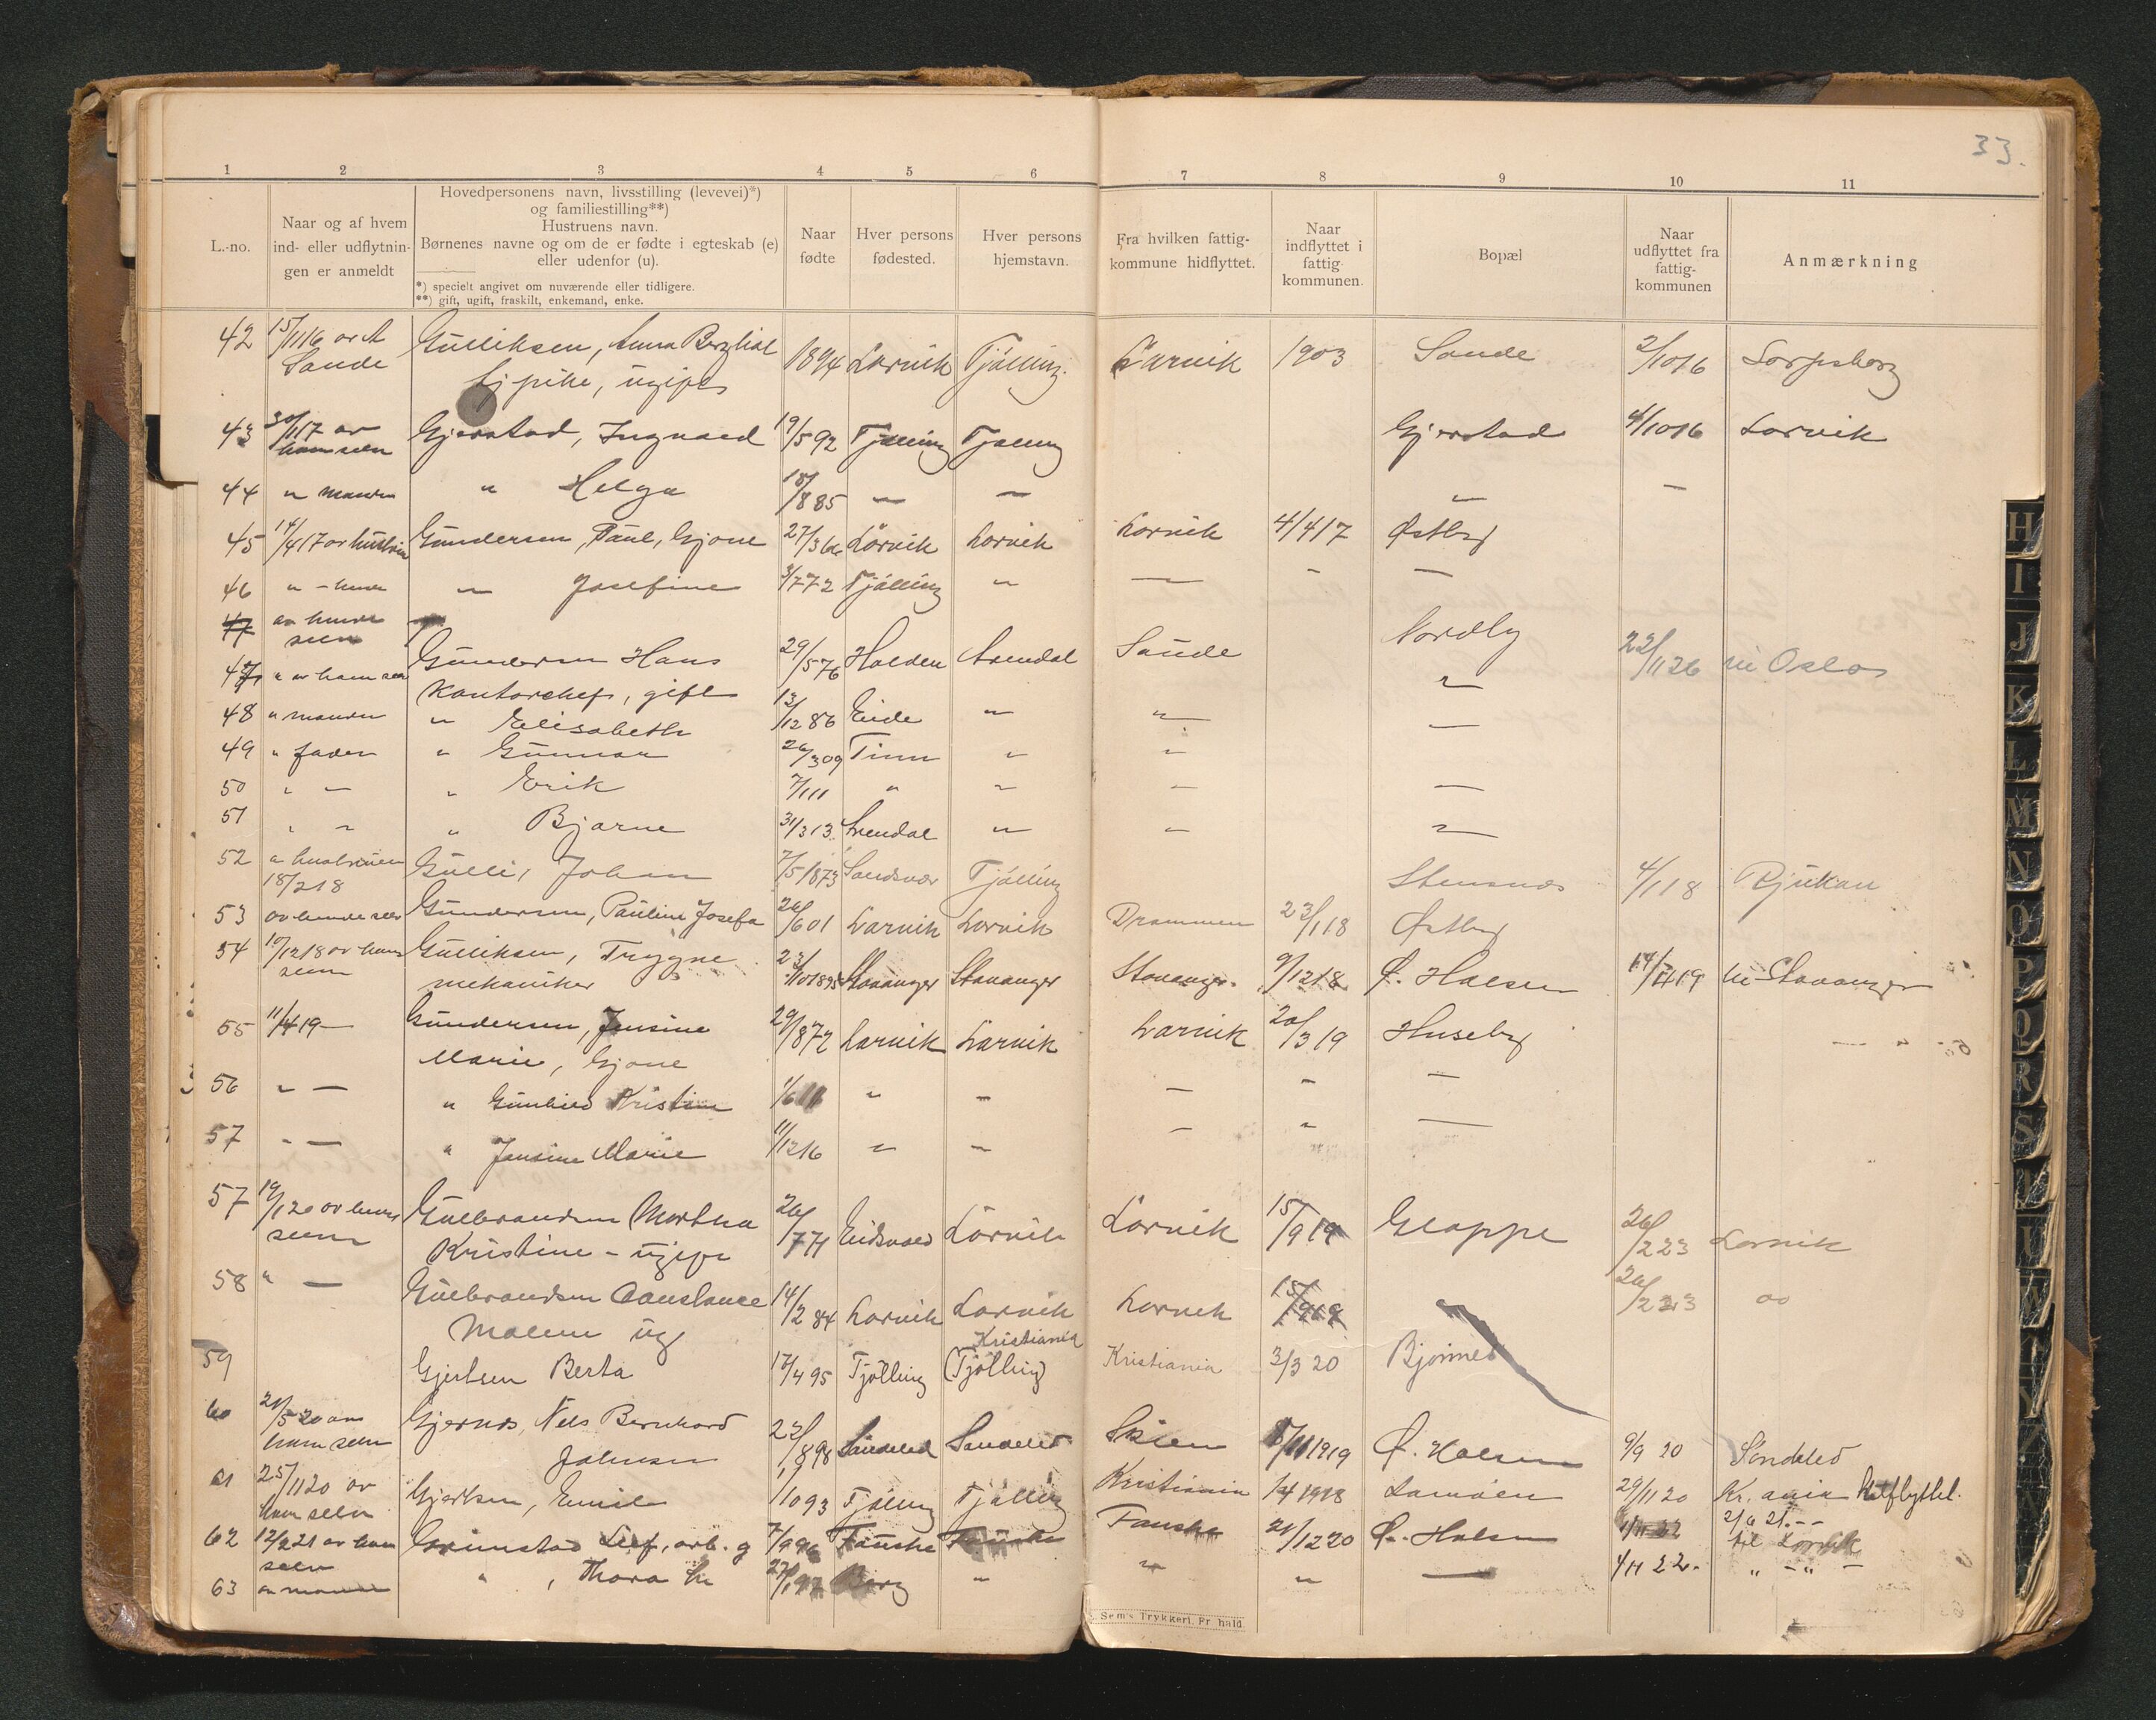 33.
1 2 3 4 5 6 7 8 9 10 11
L.-no.
Naar og af hvem
ind- eller udflytnin-
gen er anmeldt
Hovedpersonens navn, livsstilling (levevei)*)
og familiestilling**)
Hustruens navn.
Børnenes navne og om de er fødte i egteskab (e)
eller udenfor (u).
*) specielt angivet om nuværende eller tidligere.
**) gift, ugift, fraskilt, enkemand, enke.
Naar
fødte
Hver persons
fødested.
Hver persons
hjemstavn.
Fra hvilken fattig-
kommune hidflyttet.
Naar
indflyttet i
fattig-
kommunen.
Bopæl
Naar
udflyttet fra
fattig-
kommunen
Anmærkning
42 15/1116 av A Gulliksen, Anna 1894 Larvik Tjølling. Larvik 1903 Sande 2/1016 Sarpsborg
Sande tjpike, ugift
43 30/117 av Gjerstad, Ingvald 19/592 Tjølling Tjølling Gjerstad 4/1016 Larvik
ham selv
44 " manden " Helga 18/885 — — " —
45 14/417 av hustruen Gundersen, Paul, Gjone 27/366 Larvik Larvik Larvik 4/417 Østby
46 " - " Josefine 3/772 Tjølling " — - —
47 av hende
selv
47 " av ham selv Gundersen Hans 29/576 Halden Arendal Sande Nordby 22/1126 til Oslo
kontorchef, gift "
48 " manden " Elisabeth 13/1286 Eide " " —
49 " fader " Gunnar 26/309 Tinn " "
50 " — " Erik 7/111 " " — —
51 " " " Bjarne 31/313 Arendal " " "
52 " hustruen Gulli, Johan 7/51873 Sandsvær Tjølling Stensnes 4/118 Rjukan
18/218
53 av hende selv Gundersen, Pauline Josefa 26/601 Larvik Larvik Drammen 23/118 Østby
54 10/1218 av ham Gulliksen, Trygve 23/101895 Stavanger Stavanger Stavanger. 9/1218 Ø. Halsen 14/419 til Stavanger
selv mekaniker
55 11/419 — Gundersen, Jensine 29/872 Larvik Larvik Larvik 20/319 Huseby
Marie, Gjone
56 " — " Gunhild Kristine 1/611 " — — " —
57 " — " Jensine Marie 11/1216 " — — " —
57 19/120 av hende Gulbrandsen Martha 26/771 Eidsvold Larvik Larvik 15/919 Gloppe 26/223 Larvik
selv Kristine - ugift
58 " — Gulbrandsen Constance 14/284 Larvik Larvik Larvik 15/919 " 26/223 do
Malene ug
Kristiania
59 Gjertsen Berta 17/495 Tjølling (Tjølling) Kristiania 3/3 20 Bjønnes
60 21/520 av Gjernes, Nils Bernhard 22/898 Søndeled Søndeled Skien 1919 Ø. Halsen 9/9 20 Søndeled
ham selv Johnsen
61 25/1120 av Gjertsen, Emil 1/1093 Tjølling Tjølling Kristiania 1/4 1918 Lamøen 29/11 20 Kr.ania
ham selv 2/6 21 --
62 12/221 av ham Grimstad Leif, arb. g 7/996 Fauske Fauske Fauske 21/1220 Ø. Halsen 4/11 22 til Larvik
selv
63 av manden " , Thora hu 27/197 Berg " " " — 4/11 22. " -"- —
Sem's Trykkeri, Fr.hald
H
I
J
K
L
M
N
O
P
Q
R
S
U
W
Y